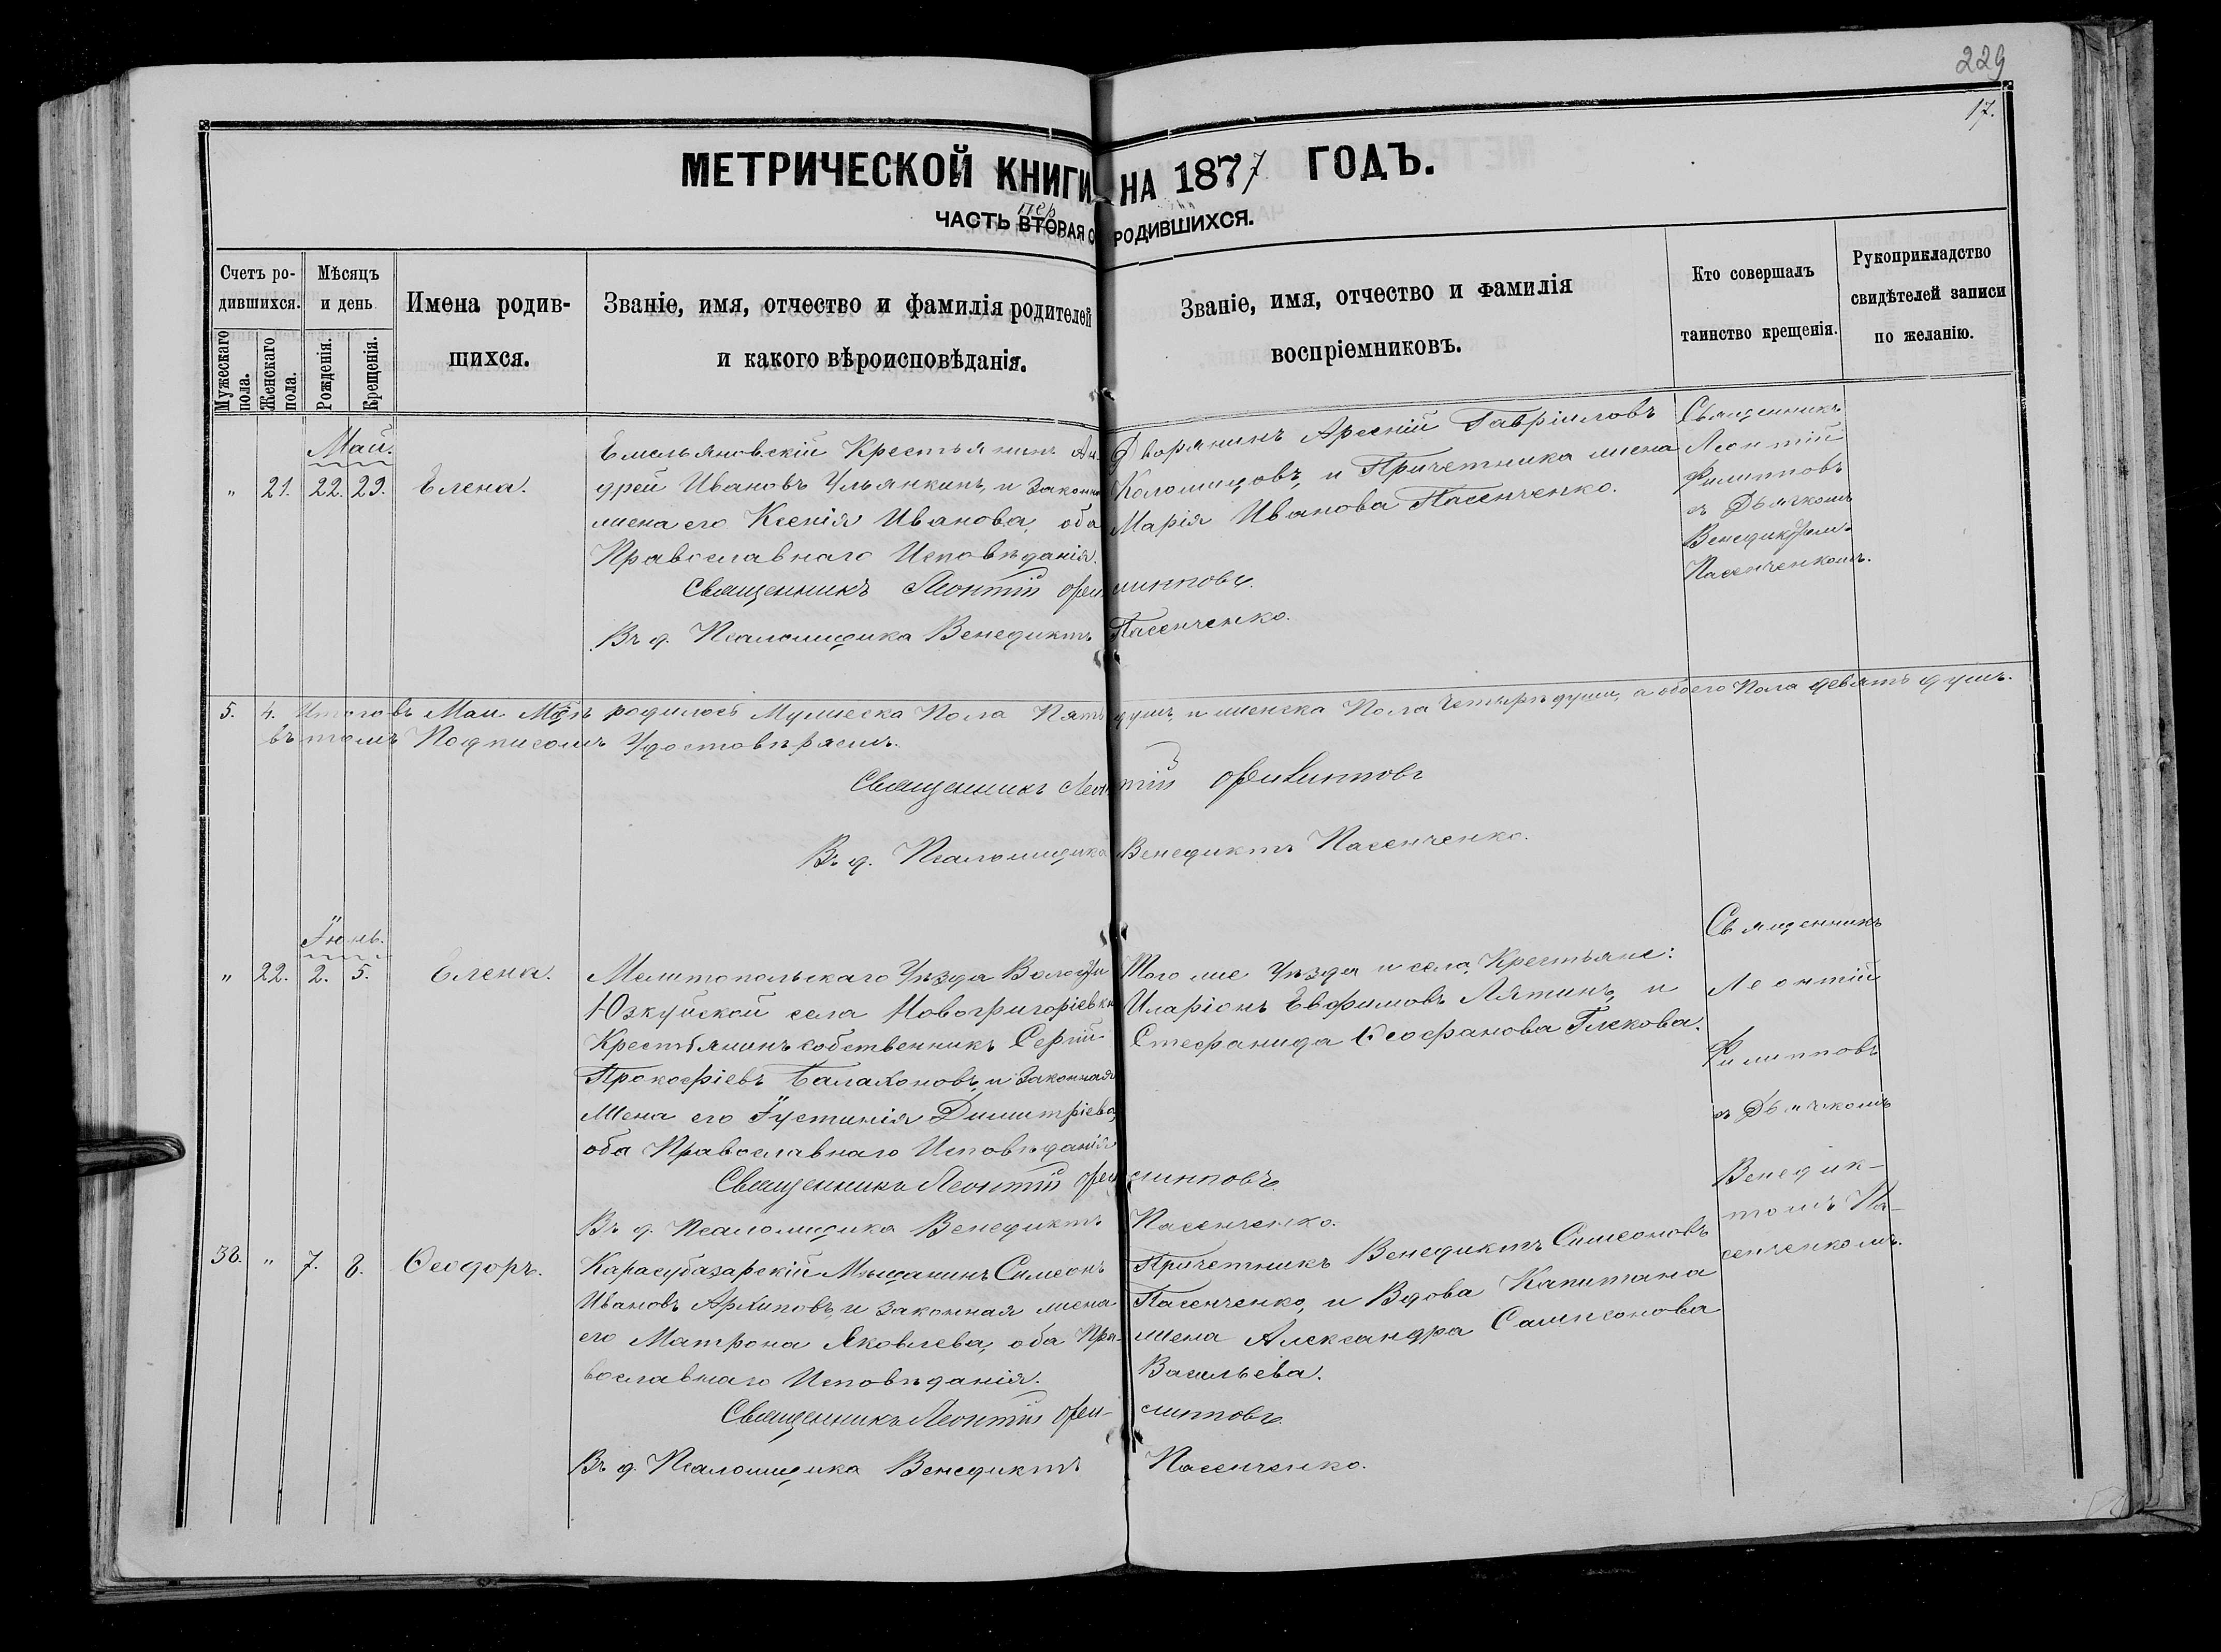 229
17.
МЕТРИЧЕСКОЙ КНИГИ НА 1877 ГОДЪ.
пер
ЧАСТЬ ВТОРАЯ О РОДИВШИХСЯ.
Счетъ ро-
дившихся.
Мужескаго
пола.
Женскаго
пола.
Мѣсяцъ
и день
Рожденія.
Крещенія.
Имена родив-
шихся.
Званіе, имя, отчество и фамилія родителей
и какого вѣроисповѣданія.
Званіе, имя, отчество и фамилія
воспріемниковъ.
Кто совершалъ
таинство крещенія.
Рукоприкладство
свидѣтелей записи
по желанію.
Май.
" 21. 22. 23. Елена.
Емельяновскій Крестьянинъ Ан-
дрей Ивановъ Ульянкинъ, и законная
жена его Ксенія Иванова, оба
Православнаго Исповѣданія.
Дворянинъ Арсеній Гавріиловъ
Коломицовъ, и Причетника жена
Марія Иванова Пасенченко.
Священникъ
Леонтій
Филипповъ
съ Дьячкомъ
Венедиктомъ
Пасенченкомъ.
Священникъ Леонтій Филипповъ.
Въ д. Псаломщика Венедиктъ Пасенченко.
5. 4. Итого въ Маи М-цѣ родилось Мужеска Пола Пять душъ, и женска Пола Четыре души, а обоего Пола девять душъ.
въ томъ Подписомъ Удостовѣряемъ.
Священникъ Леонтій Филипповъ
Въ д. Псаломщика Венедиктъ Пасенченко.
Іюнь.
" 22. 2. 5. Елена.
Мелитопольскаго Уѣзда Волости
Юзкуйской села Новогригоріевки
Крестьянинъ собственникъ Сергій
Прокофіевъ Балахоновъ, и Законная
Жена его Іустинія Димитріева,
оба Православнаго Исповѣданія
Того же Уѣзда и села, Крестьяне:
Иларіонъ Евфимовъ Лятинъ, и
Стефанида Ѳеофанова Глекова.
Священникъ
Леонтій
Филипповъ
съ Дьячкомъ
Венедик-
томъ Па-
сенченкомъ.
Священникъ Леонтій Филипповъ.
Въ д. Псаломщика Венедиктъ Пасенченко.
38. " 7. 8. Ѳеодоръ.
Карасубазарскій Мѣщанинъ Симеонъ
Ивановъ Архиповъ, и законная жена
его Матрона Яковлева, оба Пра-
вославнаго Исповѣданія.
Причетникъ Венедиктъ Симеоновъ
Пасенченко, и Вдова Капитана
жена Александра Сампсонова
Васильева.
Священникъ Леонтій Филипповъ.
Въ д. Псаломщика Венедиктъ Пасенченко.